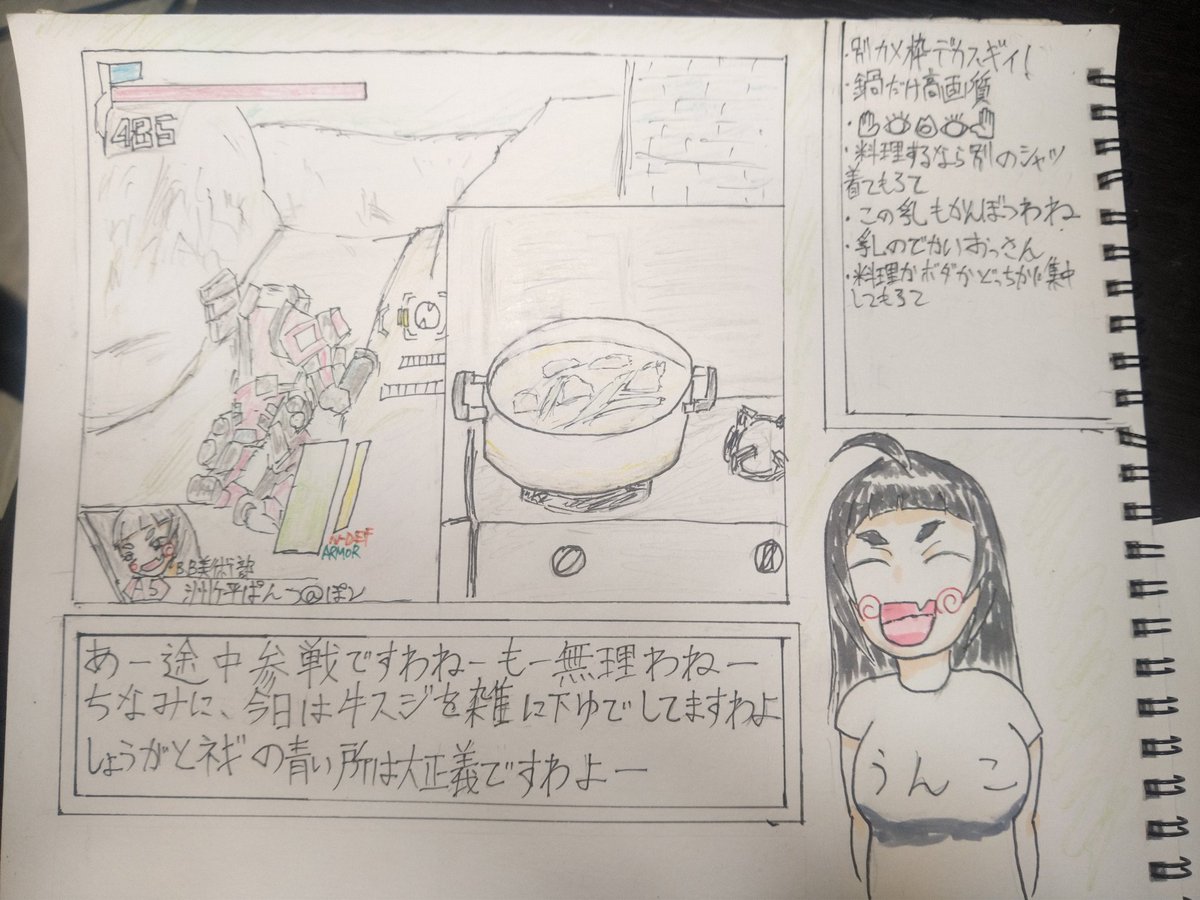 485
N-DEF
ARMOR
BB美術部
A5
あー途中参戦ですわねーもー無理わねー
ちなみに、今日は牛スジを雑に下ゆでしてますわよ
しょうがとネギの青い所は大正義ですわよー
・別カメ枠デカスギィ!
・鍋だけ高画質
・料理するなら別のシャツ
着てもろて
・この乳もがんぼつわね
・乳のでかいおっさん
・料理かボダかどっちかに集中
してもろて
うんこ